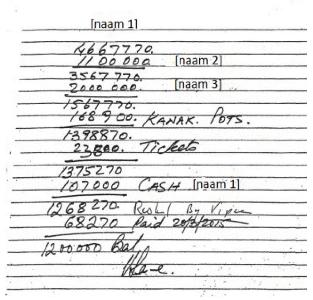 [naam 1]
4667770.
1100 000 [naam 2]
3567 770.
2000 000. [naam 3]
1567770.
168 900. KANAK. POTS.
1398870.
Tickets
1375270
107000 CASH [naam 1]
1268270 By
68270 Paid 20/3/2015
1200000 Bal.